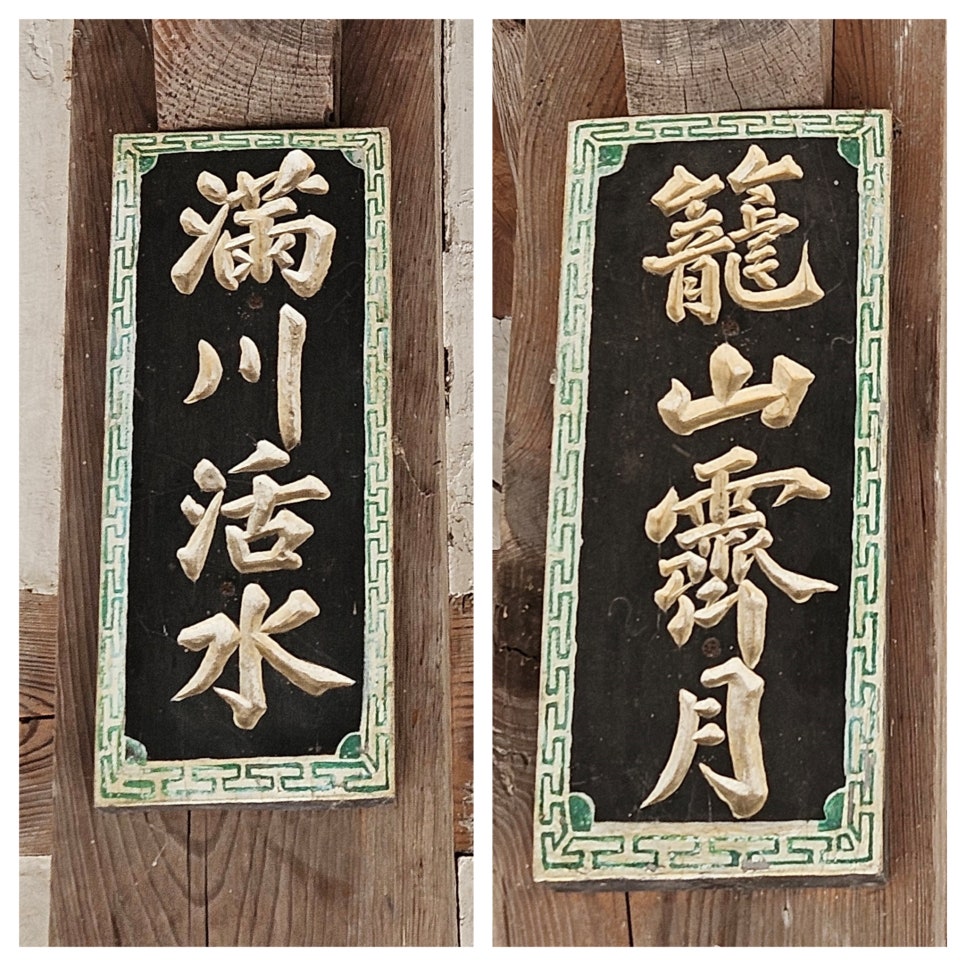 滿川活水
籠山霽月